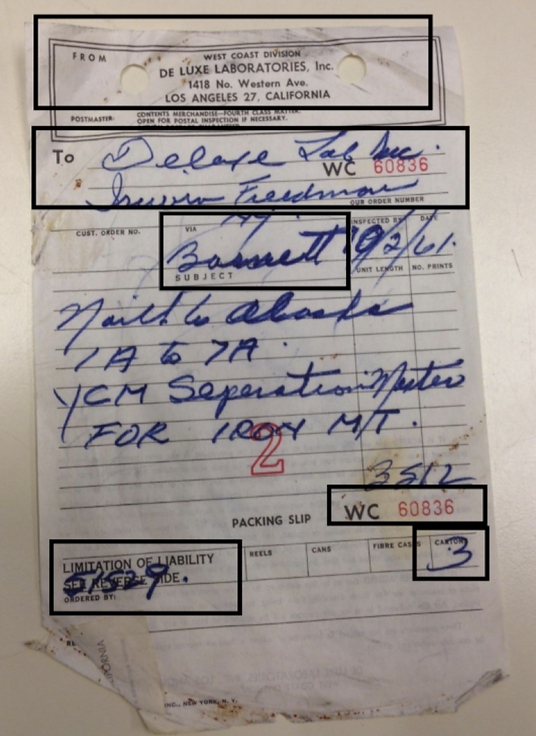 FROM
WEST COAST DIVISION
DE LUXE LABORATORIES, Inc.
1418 No. Western Ave.
LOS ANGELES 27, CALIFORNIA
POSTMASTER: CONTENTS MERCHANDISE—FOURTH CLASS MATTER.
OPEN FOR POSTAL INSPECTION IF NECESSARY.
To Deluxe Lab Inc.
WC 60836
Freedman
OUR ORDER NUMBER
N.Y.
CUST. ORDER NO. VIA INSPECTED BY DATE
Barnett 10/2/61.
SUBJECT UNIT LENGTH NO. PRINTS
North to Alaska
1A to 7A.
YCM Seperation Master
FOR M/T.
2
3512
PACKING SLIP WC 60836
LIMITATION OF LIABILITY REELS CANS FIBRE CASES CARTONS
SEE REVERSE SIDE. 3
51529.
ORDERED BY:
INC., NEW YORK, N. Y.